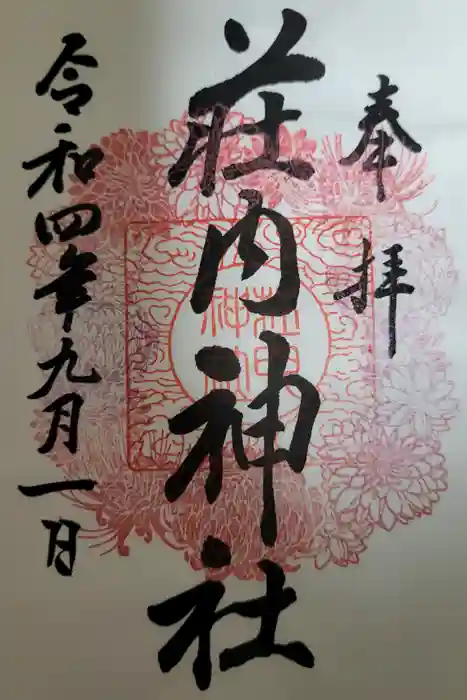 奉拝
荘内神社
令和四年九月一日